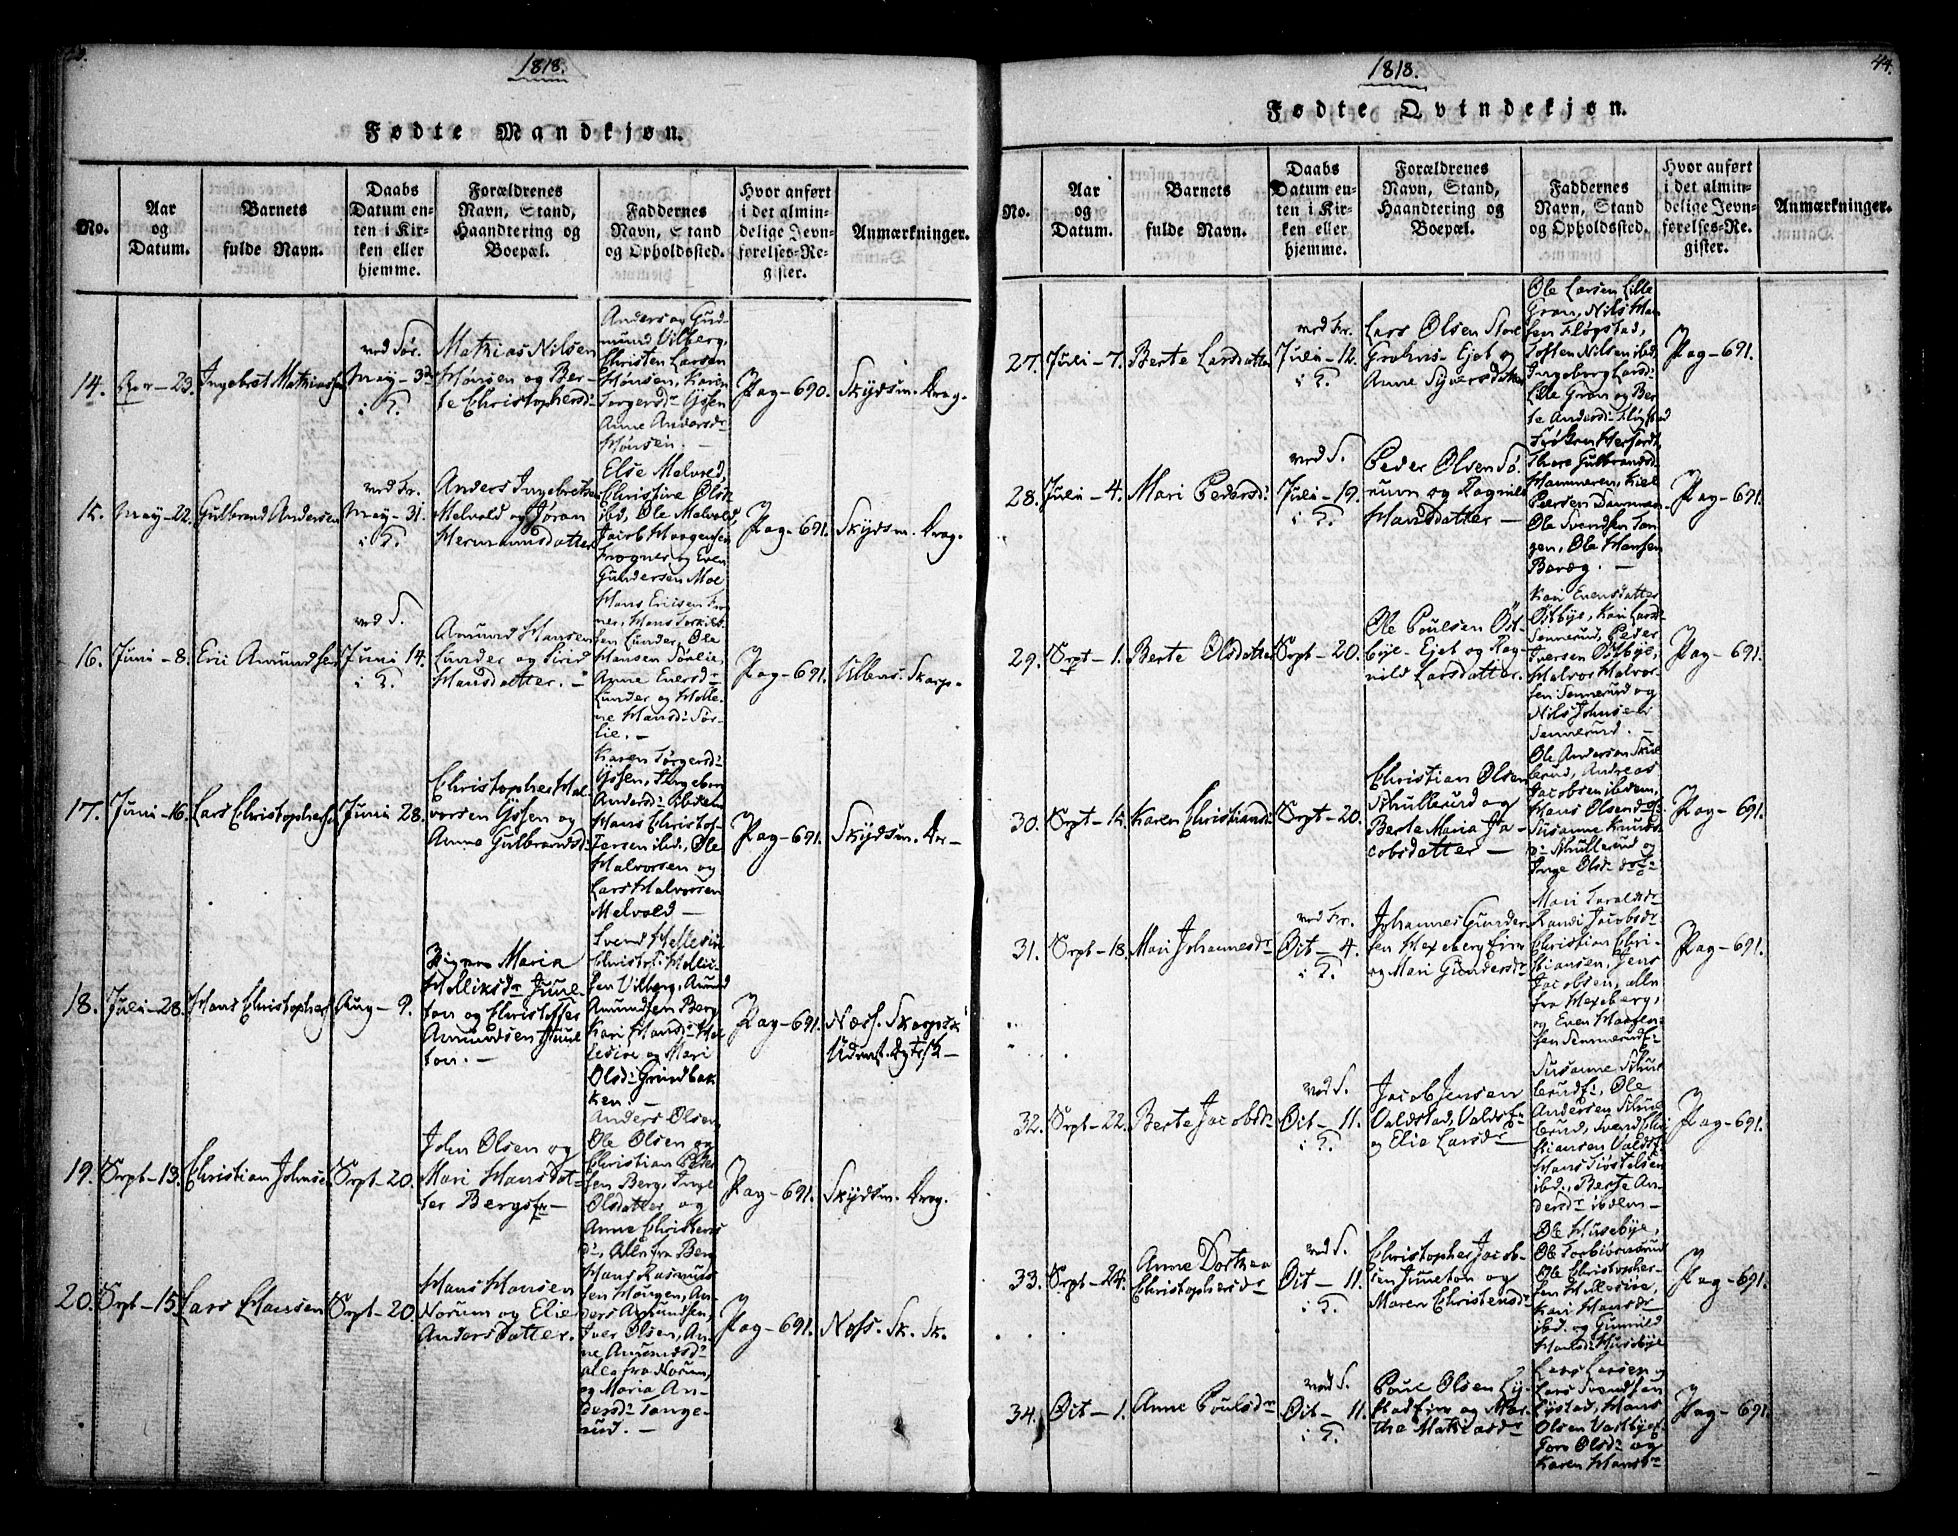 1818.
Fødte Mandkjøn.
No.
Aar
og
Datum.
Barnets
fulde Navn.
Daabs
Datum en-
ten i Kir-
ken eller
hjemme.
Forældrenes
Navn, Stand,
Haandtering og
Boepæl.
Faddernes
Navn, Stand
og Opholdssted.
Hvor anført
i det almin-
delige Jevn-
førelses-Re-
gister.
Anmærkninger.
14.
Apr - 23.
Ingebret Mathiassen
May - 3
i K.
Mathias Nilsen
Hønsen og Ber-
te Christophersd:
Anders og Gud-
mund Vilberg,
Christen Larsen
Hønsen, Karen
Torgersd: Gjssen
Anne Andersdr
Hønsen. -
Pag - 690.
Skydsm. Drag.
15.
May - 22.
Gulbrand Andersen
ved Fr.
May - 31.
i K.
Anders Ingebretsen
Melvold og Jøran
Hermansdatter
Else Melvold,
Christine Olsdr
ibid, Ole Melvold,
Jacob Haagensen
Frogner, og Even
Gundersen Moe
Pag - 691.
Skydsm. Drag.
16.
Juni - 8.
Eric Amundsen
ved S.
Juni 14.
i K.
Amund Hansen
Lunder og Sirid
Hansdatter. -
Hans Ericsen
Lunder, Ole
Hansen Sørlie,
Anne Eversdr
Lunder og Helle-
ne Hansd: Sør-
lie. -
Pag - 691.
Ullens. Skarp.
17.
Juni - 16.
Lars Christophersen
Juni 28.
Christopher Hal-
vorsen Gjssen og
Anne Gulbrandsd:
Karen Torgersd:
Gjssen, Ingeborg
Andersd:
Hans Christof-
fersen ibid., Ole
Halvorsen og
Lars Halvorsen
Melvold -
Pag - 691.
Skydsm. Dr -
18.
Juli - 28.
Hans Christophersen
Aug - 9.
Maria
Juul-
ton og Christoffer
Amundsen Juul-
ton. -
Svend Hellesiøe
Vilberg, Amund
Amundsen Berg
Kari Hansd: Hel-
lesiøe og Mari
Olsd: Grindbak-
ken. -
Pag - 691.
Næss. Skarpsk.
19.
Sept - 13.
Christian Johnsen
Sept - 20.
John Olsen og
Mari Hansdat-
ter Berg
Anders Olsen,
Ole Olsen og
Christian Peder-
sen Berg, Inge
Olsdatter og
Anne Christens
d:, Alle fra Berg
Pag - 691.
Skydsm. Drag.
20.
Sept - 15.
Lars Hansen
Sept - 20.
Hans Hansen
Norum og Elie
Andersdatter.
Hans Rasmus-
sen Hougen, An-
ders Amundsen,
Iver Olsen, An-
ne Amundsd:
alle fra Norum,
og Maria An-
dersd: Tange-
rud. -
Pag - 691.
Næss. Sk. Sk.
1818.
44.
Fødte Qvindekjøn.
No.
Aar
og
Datum.
Barnets
fulde Navn.
Daabs
Datum en-
ten i Kir-
ken eller
hjemme.
Forældrenes
Navn, Stand,
Haandtering og
Boepæl.
Faddernes
Navn, Stand
og Opholdssted.
Hvor anført
i det almin-
delige Jevn-
førelses-Re-
gister.
Anmærkninger.
27.
Juli - 7.
Berte Larsdatter
ved Fr.
Juli - 12.
i K.
Lars Olsen Store
Grøhns - Ejet og
Anne Syversdatter
Ole Larsen Lille
Grøn, Nils Han-
sen Fløgstad,
Toften Nilsen ibid,
Ingeborg Larsd:
Lille Grøn og Ber-
te Andersd: Fløgstad
Pag - 691.
28.
Juli - 4.
Mari Pedersd:
ved S.
Juli - 19.
i K.
Peder Olsen Sø-
rum og Ragnild
Hansdatter -
Gulbrandsd:
Hammeren, Kiel
Persen
Ole Svendsen Tan-
gen, Ole Hansen
Pag - 691.
29.
Sept - 1.
Berte Olsdatter
Sept - 20.
Ole Poulsen Øst-
bye - Ejet og Rag-
nild Larsdatter.
Kari Evensdatter
Østbye, Kari Larsd:
Sennerud, Peder
Iversen Østbye,
Halvor Halvor-
sen Sennerud og
Nils Johnsen
Sennerud. -
Pag - 691.
30.
Sept - 14.
Karen Christiansd:
Sept - 20.
Christian Olsen
Schullerud og
Berte Maria Ja-
cobsdatter -
Ole Andersen Skul-
lerud, Andreas
Jacobsen ibidem,
Hans Olsen
Susanne Knuds-
d: Schullerud og
Inge Olsd:
Pag - 691.
31.
Sept - 18.
Mari Johannesdr
ved Fr.
Oct - 4.
i K.
Johannes Gunder-
sen Hexeberg Eier
og Mari Gundersdr
Mari
Randi Jacobsdr
Christian Chri-
stiansen, Jens
Jacobsen, alle
fra Hexeberg,
og Even Haagen-
sen
Pag - 691.
32.
Sept - 22.
Berte Jacobsdr
ved S.
Oct - 11.
i K.
Jacob Jensen
Valdstad,
og Elie Larsdr
Susanne Schul-
lerud, Ole
Andersen Schul-
lerud, Svend Chri-
stiansen
ibd., Berte An-
dersdr ibidem -
Pag - 691.
33.
Sept - 24.
Anne Dorthea
Christophersdr
ved S.
Oct - 11.
i K.
Christopher Jacob-
sen Juulton og
Maren Christensdr
Ole Husebye,
Ole Torbiørnsrud
Ole Christopher-
sen Hellesiøe,
Kari Hansdr
ibd. og Gunnild
Hansd: Husebye
Pag - 691.
34.
Oct - 1.
Anne Poulsdr
ved S.
Oct - 11.
i K.
Poul Olsen Ly-
stad Eier og Mar-
the Mathiasdr
Lars Larsen og
Lars Svendsen
Lystad, Hans
Olsen Vestbye,
Toro Olsd: og
Karen Hansdr
Pag - 691.